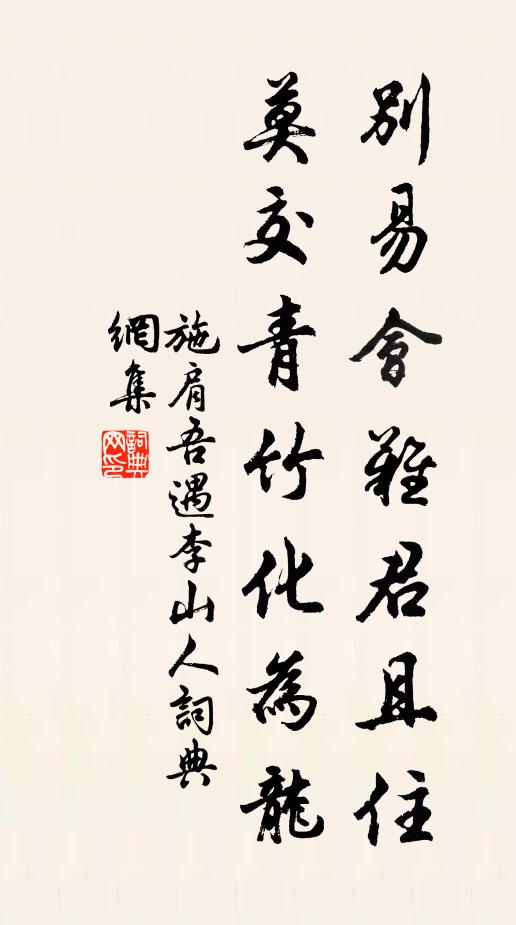 別易會難君且住
莫交青竹化為龍
施肩吾遇李山人詞典
網集
詞典網印